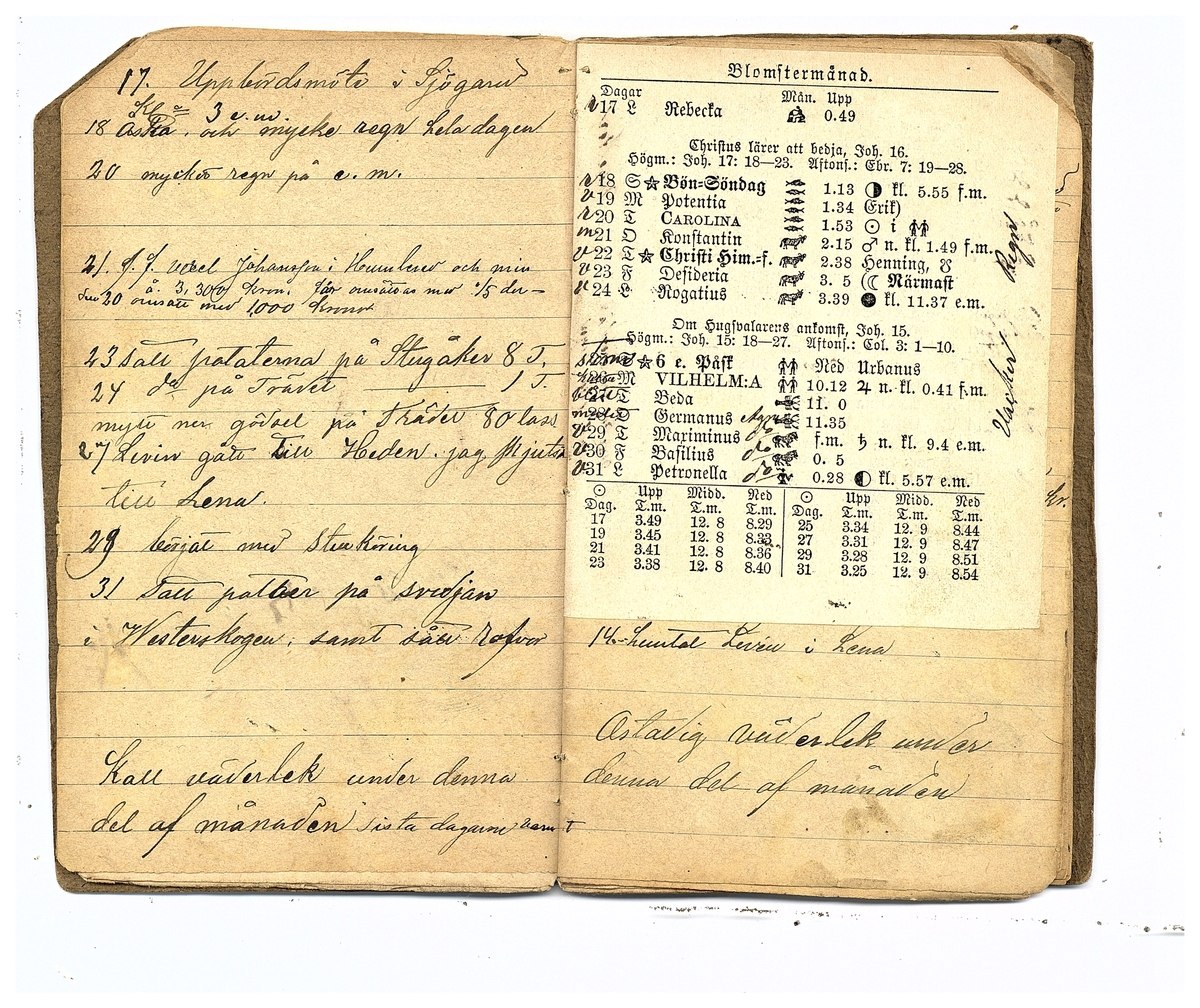 17. Uppbördsmöte i Sjögared
Kl 3 e.m.
18 Åska och mycke regn hela dagen
20 mycket regn på e. m.
21. f. f. vexel Johansson i och min
å 3,300 Kron. får omsättas med 1/5 der-
den 20 omsatt med 1,000 Kronor
23 satt potaterna på Stugåker 8 T.
24 do på Trävet 1 T.
myllt ner gödsel på Trädet 80 lass
27 Levin gått till Heden. jag skjutsa
till Lena.
29 börjat med Stenköring
31 satt potater på svedjan
i Westerskogen, samt sått rofvor
Kall väderlek under denna
del af månaden sista dagarne varmt
Blomstermånad.
Dagar Mån. Upp
v 17 L Rebecka 0.49
Christus lärer att bedja, Joh. 16.
Högm.: Joh. 17: 18—23. Aftons.: Ebr. 7: 19—28.
r 18 S ☆ Bön-Söndag 1.13 ◑ kl. 5.55 f.m.
v 19 M Potentia 1.34 Erik)
r 20 T CAROLINA 1.53 ☉ i
m 21 O Konstantin 2.15 ♂ n. kl. 1.49 f.m.
v 22 T ☆ Christi Him.-f. 2.38 Henning, ☋
v 23 F Desideria 3. 5 ☾ Närmast
v 24 L Rogatius 3.39 ● kl. 11.37 e.m.
Om Hugsvalarens ankomst, Joh. 15.
Högm.: Joh. 15: 18—27. Aftons.: Col. 3: 1—10.
25 S ☆ 6 e. Påsk Ned Urbanus
26 M VILHELM:A 10.12 ♃ n. kl. 0.41 f.m.
27 T Beda 11. 0
28 O Germanus 11.35
v 29 T Maximinus do f.m. ♄ n. kl. 9.4 e.m.
v 30 F Basilius do 0. 5
v 31 L Petronella do 0.28 ◐ kl. 5.57 e.m.
Vackert Regn
☉ Upp Midd. Ned ☉ Upp Midd. Ned
Dag. T.m. T.m. T.m. Dag. T.m. T.m. T.m.
17 3.49 12. 8 8.29 25 3.34 12. 9 8.44
19 3.45 12. 8 8.33 27 3.31 12. 9 8.47
21 3.41 12. 8 8.36 29 3.28 12. 9 8.51
23 3.38 12. 8 8.40 31 3.25 12. 9 8.54
14. Levin i Lena
Ostadig väderlek under
denna del af månaden